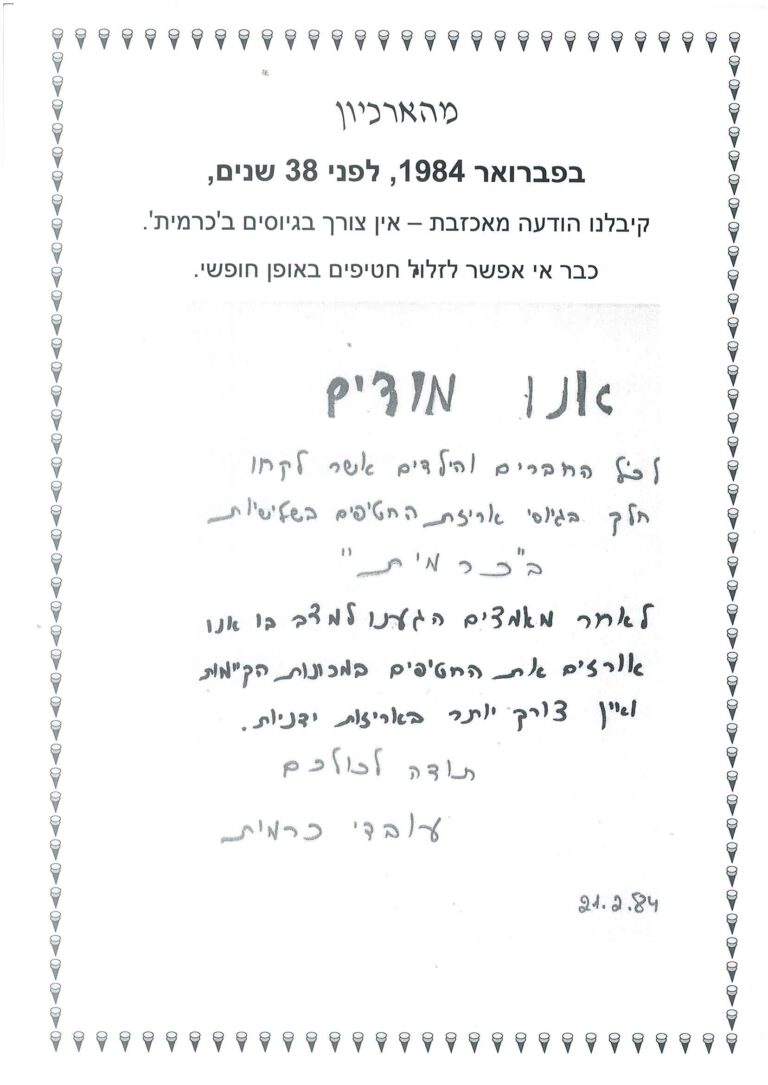 מהארכיון
בפברואר 1984, לפני 38 שנים,
קיבלנו הודעה מאכזבת – אין צורך בגיוסים ב'כרמית'.
כבר אי אפשר לזלול חטיפים באופן חופשי.
אנו מודים
לכל החברים והילדים אשר לקחו
חלק בגיוסי אריזת החטיפים בשלישיות
ב"כרמית"
לאחר מאמצים הגענו למצב בו אנו
אורזים את החטיפים במכונות הקיימות
ואין צורך יותר באריזות ידניות.
תודה לכולכם
עובדי כרמית
21.2.84